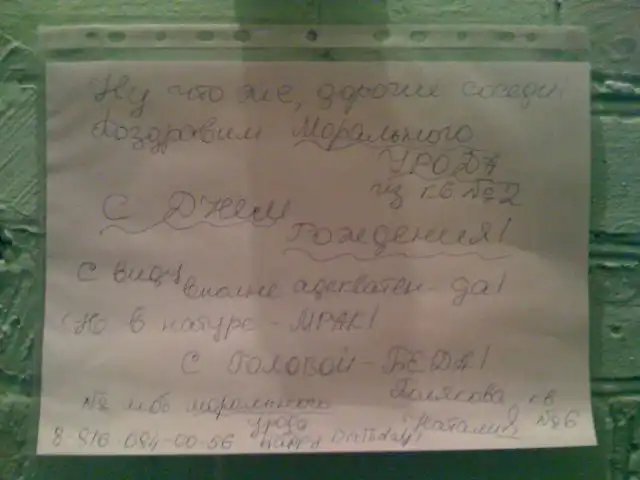 Ну что же, дорогие соседи!
Поздравим Морального
УРОДА
из кв №2
С Днём
Рождения!
С виду вполне адекватен - да!
Но в натуре - МРАК!
С ГОЛОВОЙ - БЕДА!
Полякова кв
№ моб морального Наталия №6
урода
8 916 094-00-56 Happy Birthday!